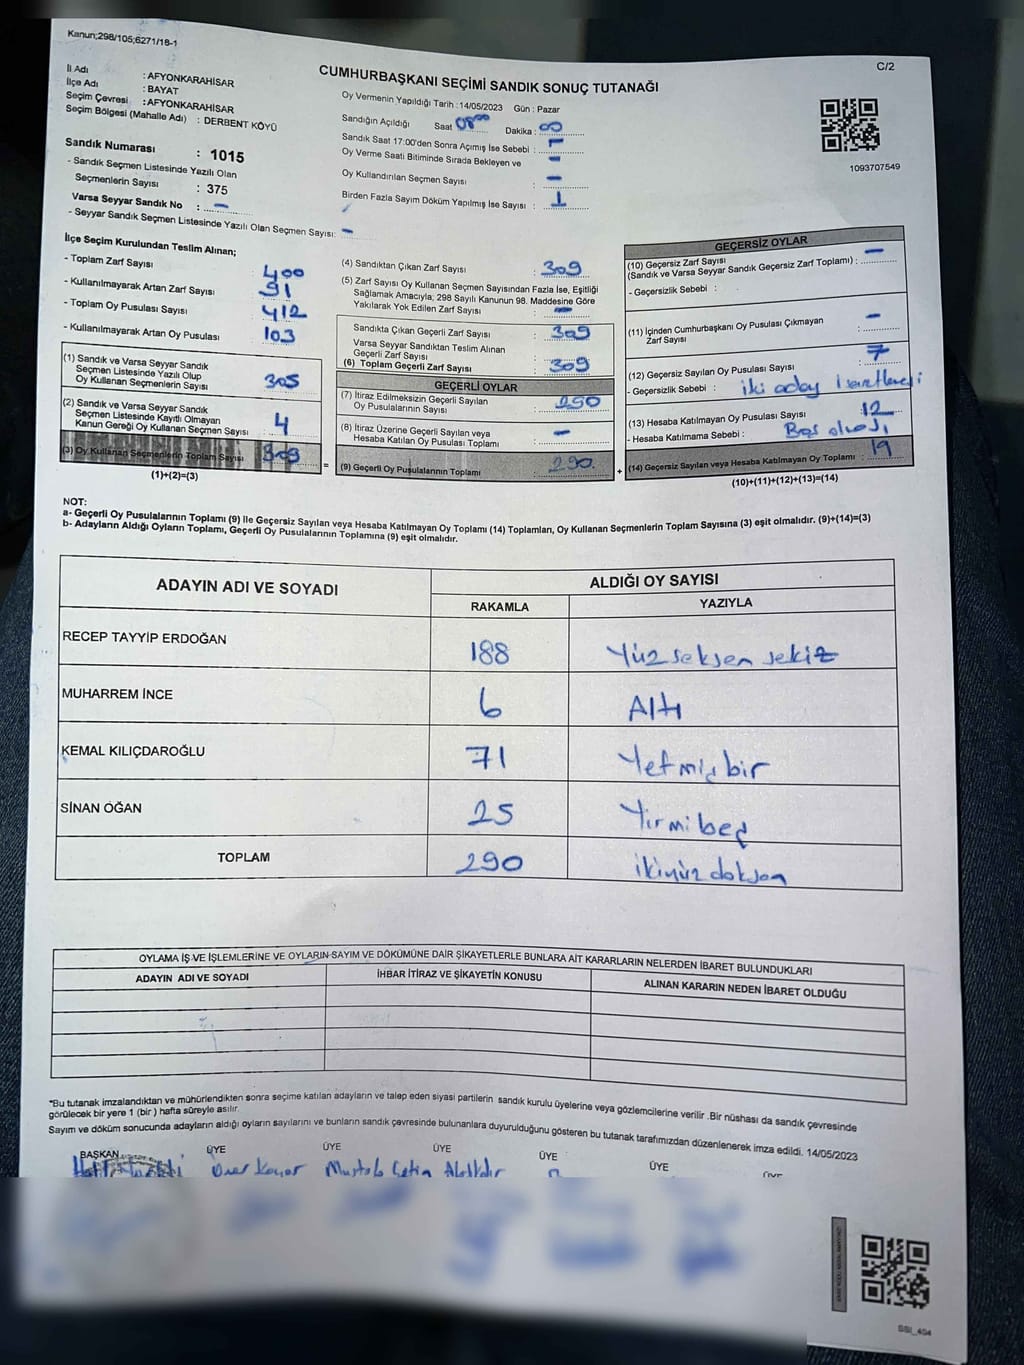 Kanun;298/105;6271/18-1
C/2
CUMHURBAŞKANI SEÇİMİ SANDIK SONUÇ TUTANAĞI
İl Adı : AFYONKARAHİSAR
İlçe Adı : BAYAT
Seçim Çevresi : AFYONKARAHİSAR
Seçim Bölgesi (Mahalle Adı) : DERBENT KÖYÜ
Sandık Numarası : 1015
- Sandık Seçmen Listesinde Yazılı Olan
Seçmenlerin Sayısı : 375
Varsa Seyyar Sandık No : -
- Seyyar Sandık Seçmen Listesinde Yazılı Olan Seçmen Sayısı: -
Oy Vermenin Yapıldığı Tarih : 14/05/2023 Gün : Pazar
Sandığın Açıldığı Saat 08⁰⁰ Dakika : 00
Sandık Saat 17:00'den Sonra Açımış İse Sebebi : -
Oy Verme Saati Bitiminde Sırada Bekleyen ve -
Oy Kullandırılan Seçmen Sayısı : -
Birden Fazla Sayım Döküm Yapılmış İse Sayısı : 1
1093707549
İlçe Seçim Kurulundan Teslim Alınan;
- Toplam Zarf Sayısı 400
- Kullanılmayarak Artan Zarf Sayısı : 91
- Toplam Oy Pusulası Sayısı : 412
- Kullanılmayarak Artan Oy Pusulası : 103
(1) Sandık ve Varsa Seyyar Sandık
Seçmen Listesinde Yazılı Olup
Oy Kullanan Seçmenlerin Sayısı : 305
(2) Sandık ve Varsa Seyyar Sandık
Seçmen Listesinde Kayıtlı Olmayan
Kanun Gereği Oy Kullanan Seçmen Sayısı : 4
(3) Oy Kullanan Seçmenlerin Toplam Sayısı : 309
(1)+(2)=(3)
(4) Sandıktan Çıkan Zarf Sayısı : 309
(5) Zarf Sayısı Oy Kullanan Seçmen Sayısından Fazla İse, Eşitliği
Sağlamak Amacıyla; 298 Sayılı Kanunun 98. Maddesine Göre
Yakılarak Yok Edilen Zarf Sayısı : -
Sandıkta Çıkan Geçerli Zarf Sayısı : 309
Varsa Seyyar Sandıktan Teslim Alınan
Geçerli Zarf Sayısı :
(6) Toplam Geçerli Zarf Sayısı : 309
GEÇERLİ OYLAR
(7) İtiraz Edilmeksizin Geçerli Sayılan
Oy Pusulasının Sayısı : 290
(8) İtiraz Üzerine Geçerli Sayılan veya
Hesaba Katılan Oy Pusulası Toplamı : -
= (9) Geçerli Oy Pusulalarının Toplamı : 290
GEÇERSİZ OYLAR
(10) Geçersiz Zarf Sayısı -
(Sandık ve Varsa Seyyar Sandık Geçersiz Zarf Toplamı) :
- Geçersizlik Sebebi :
(11) İçinden Cumhurbaşkanı Oy Pusulası Çıkmayan -
Zarf Sayısı :
(12) Geçersiz Sayılan Oy Pusulası Sayısı : 7
- Geçersizlik Sebebi : iki aday işaretlemesi
(13) Hesaba Katılmayan Oy Pusulası Sayısı : 12
- Hesaba Katılmama Sebebi : Boş olması
+ (14) Geçersiz Sayılan veya Hesaba Katılmayan Oy Toplamı : 19
(10)+(11)+(12)+(13)=(14)
NOT:
a- Geçerli Oy Pusulalarının Toplamı (9) İle Geçersiz Sayılan veya Hesaba Katılmayan Oy Toplamı (14) Toplamları, Oy Kullanan Seçmenlerin Toplam Sayısına (3) eşit olmalıdır. (9)+(14)=(3)
b- Adayların Aldığı Oyların Toplamı, Geçerli Oy Pusulalarının Toplamına (9) eşit olmalıdır.
ADAYIN ADI VE SOYADI ALDIĞI OY SAYISI
RAKAMLA YAZIYLA
RECEP TAYYİP ERDOĞAN 188 Yüz seksen sekiz
MUHARREM İNCE 6 Altı
KEMAL KILIÇDAROĞLU 71 Yetmiş bir
SİNAN OĞAN 25 Yirmi beş
TOPLAM 290 ikiyüz doksan
OYLAMA İŞ VE İŞLEMLERİNE VE OYLARIN SAYIM VE DÖKÜMÜNE DAİR ŞİKAYETLERLE BUNLARA AİT KARARLARIN NELERDEN İBARET BULUNDUKLARI
ADAYIN ADI VE SOYADI İHBAR İTİRAZ VE ŞİKAYETİN KONUSU ALINAN KARARIN NEDEN İBARET OLDUĞU
*Bu tutanak imzalandıktan ve mühürlendikten sonra seçime katılan adayların ve talep eden siyasi partilerin sandık kurulu üyelerine veya gözlemcilerine verilir .Bir nüshası da sandık çevresinde
görülecek bir yere 1 (bir ) hafta süreyle asılır.
Sayım ve döküm sonucunda adayların aldığı oyların sayılarını ve bunların sandık çevresinde bulunanlara duyurulduğunu gösteren bu tutanak tarafımızdan düzenlenerek imza edildi. 14/05/2023
BAŞKAN ÜYE ÜYE ÜYE ÜYE ÜYE ÜYE
Mustafa Çetin